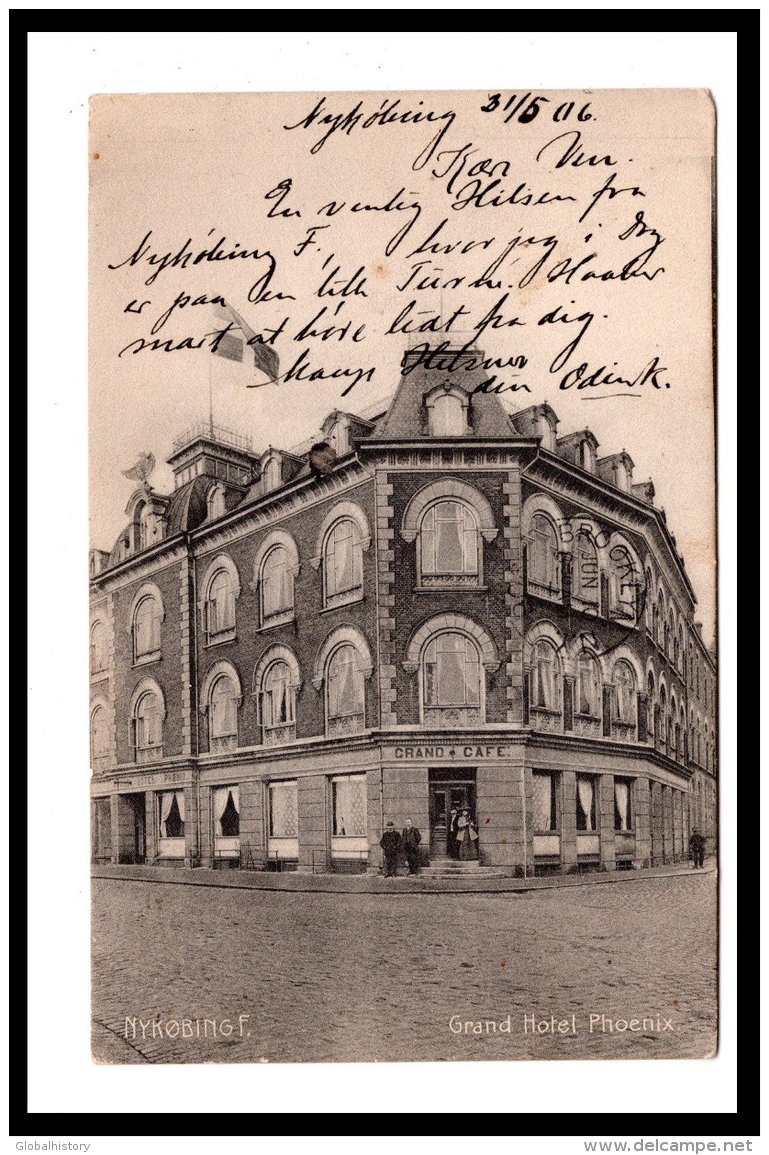 Nykøbing 31/5 06.
Kær Ven.
En venlig Hilsen fra
Nykøbing F., hvor jeg i Dag
er paa en lille Turné. Haaber
snart at høre lidt fra dig.
Mange Hilsner
din
GRAND CAFE
JUN
NYKØBING F.
Grand Hotel Phoenix.
Globalhistory
www.delcampe.net